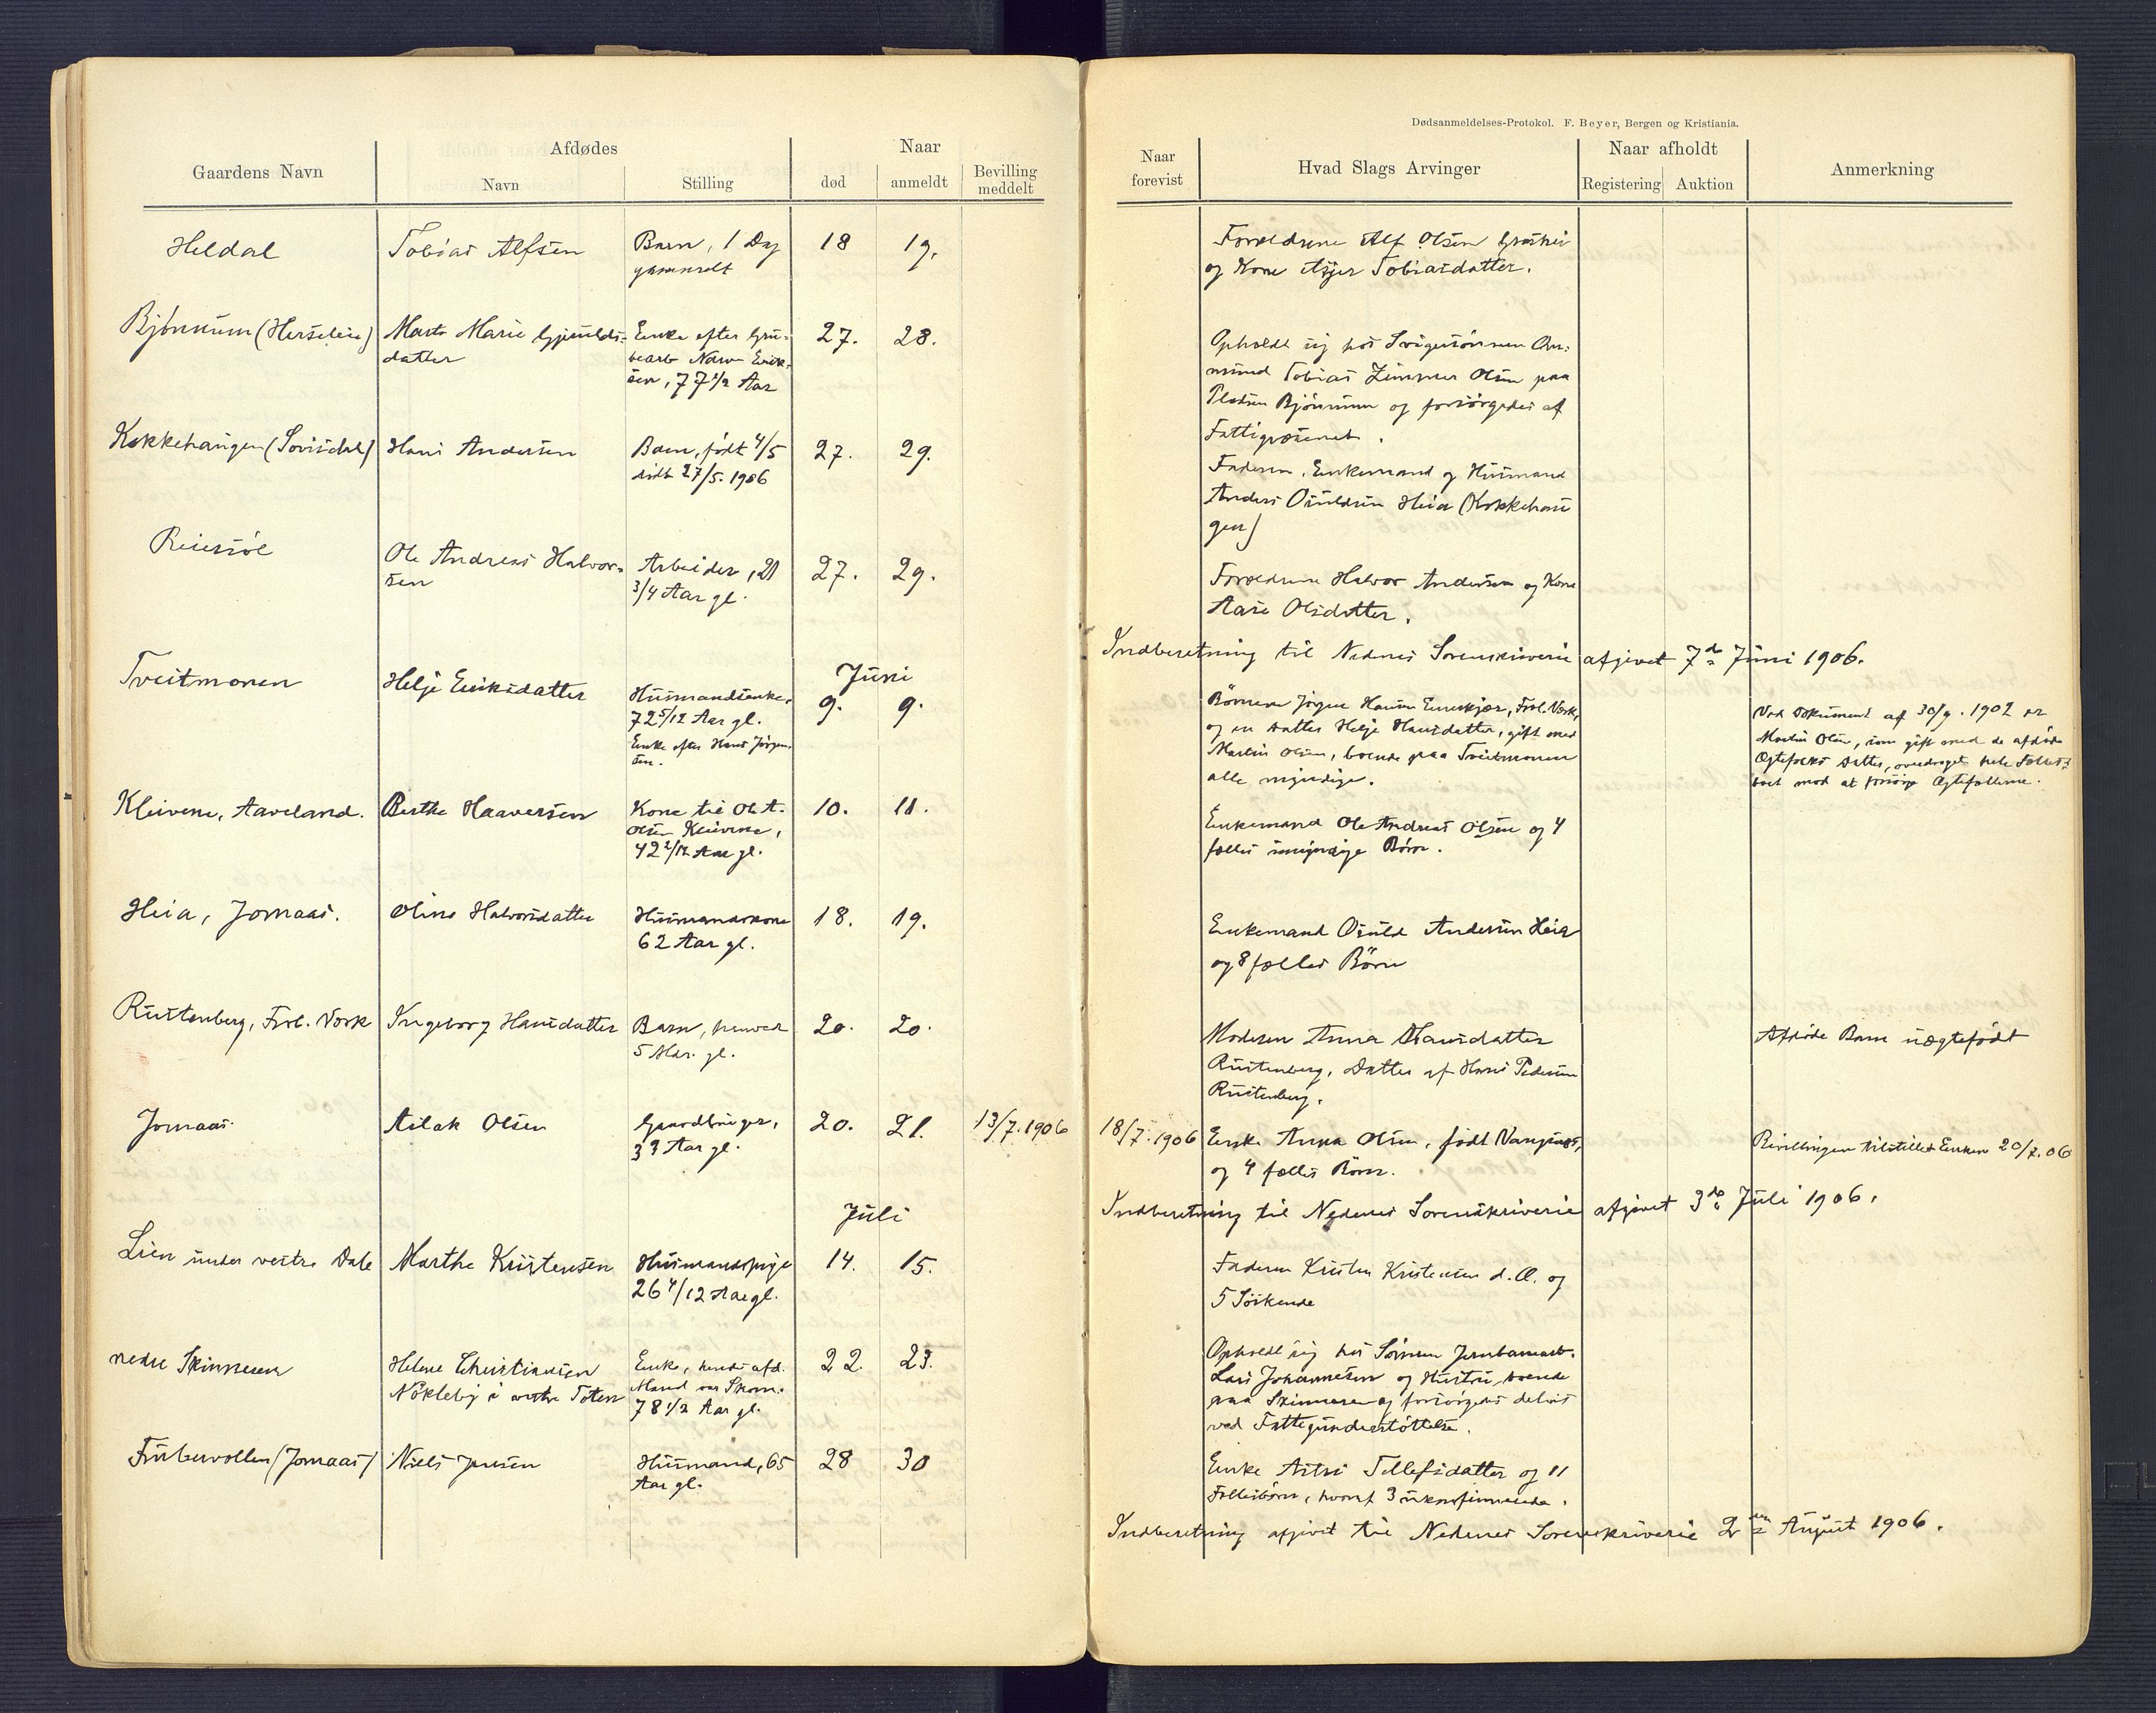 Dødsanmeldelses-Protokol. F. Beyer, Bergen og Kristiania.
Gaardens Navn
Afdødes
Navn
Stilling
Naar
død
anmeldt
Bevilling
meddelt
Naar
forevist
Hvad Slags Arvinger
Naar afholdt
Registering
Auktion
Anmerkning
Heldal
Tobias Alfsen
Barn, 1 Dag
gammelt
18
19.
Forældrene Alf Olsen
og Kone Asjer Tobiasdatter.
Bjönnum (Herseleie)
Marte Marie Gjeruldsdatter
Enke efter Grubearb
Narve Erik-
sen, 77 1/2 Aar
27.
28.
Opholdt sig hos Svigersönnen
Tobias Zimmer Olsen paa
Pladsen Bjönnum og forsörgedes af
Fattigvæsenet.
Kokkehaugen (Sovisdal)
Hans Andersen
Barn, født 4/5
dödt 27/5. 1906
27.
29.
Faderen, Enkemand og Husmand
Anders Osuldsen Heia (Kokkehau
gen)
Reiersöl
Ole Andreas Halvor-
sen
Arbeider, 21
3/4 Aar gl.
27.
29.
Forældrene Halvor Andersen og Kone
Aase Olsdatter.
Indberetning til Nedenes Sorenskriverie afgivet 7de Juni 1906.
Juni
Tveitmonen
Helje Eriksdatter
Husmandsenke,
72 5/12 Aar gl.
Enke efter Hans Jörgen-
sen.
9.
9.
Börnene Jörgen Hansen Ennekjær, Frol. Værk,
og en Datter Helje Hansdatter, gift med
Martin Olsen, boende paa Tveitmonen
alle myndige.
Ved Dokument af 30/9. 1902 er
Martin Olsen, som gift med de afdøde
Ægtefolks Datter, overdraget hele Fælles-
boet mod at forsörge Ægtefolkene.
Kleivene, Aaveland.
Berthe Haaversen
Kone til Ole A.
Olsen Kleivene,
42 2/12 Aar gl.
10.
11.
Enkemand Ole Andreas Olsen og 4
fælles umyndige Börn.
Heia, Jomaas.
Oline Halvorsdatter
Husmandskone
62 Aar gl.
18.
19.
Enkemand Osuld Andersen Heia
og 8 fælles Börn
Rustenberg, Frol. Værk
Ingeborg Hansdatter
Barn, henved
5 Mdr. gl.
20.
20.
Moderen Anna Hansdatter
Rustenberg, Datter af Hans Pedersen
Rustenberg.
Afdöde Barn uægtefödt
Jomaas.
Aslak Olsen
Gaardbruger,
33 Aar gl.
20.
21.
13/7. 1906
18/7. 1906
Enke Anna Olsen, född Vangsnes,
og 4 fælles Börn.
Bevillingen tilstillet Enken 20/7. 06
Indberetning til Nedenes Sorenskriverie afgivet 3de Juli 1906.
Juli
Lien under vestre Dale
Marthe Kristensen
Husmandspige
26 4/12 Aar gl.
14.
15.
Faderen Kristen Kristensen d. Æ. og
5 Söskende
nedre Skinnesen
Helene Christiansen
Nökleby i vestre Toten
Enke, hendes afd.
Mand var Skom.
78 1/2 Aar gl.
22.
23.
Opholdt sig hos Sönnen Jernbanearb.
Lars Johannesen og Hustru, boende
paa Skinnesen og forsörgedes delvis
ved Fattigunderstöttelse.
Furbuvollen (Jomaas)
Niels Jensen
Husmand, 65
Aar gl.
28
30
Enke Astri Tellefsdatter og 11
Fællesbörn, hvoraf 3 ukonfirmerede.
Indberetning afgivet til Nedenes Sorenskriverie 2den August 1906.